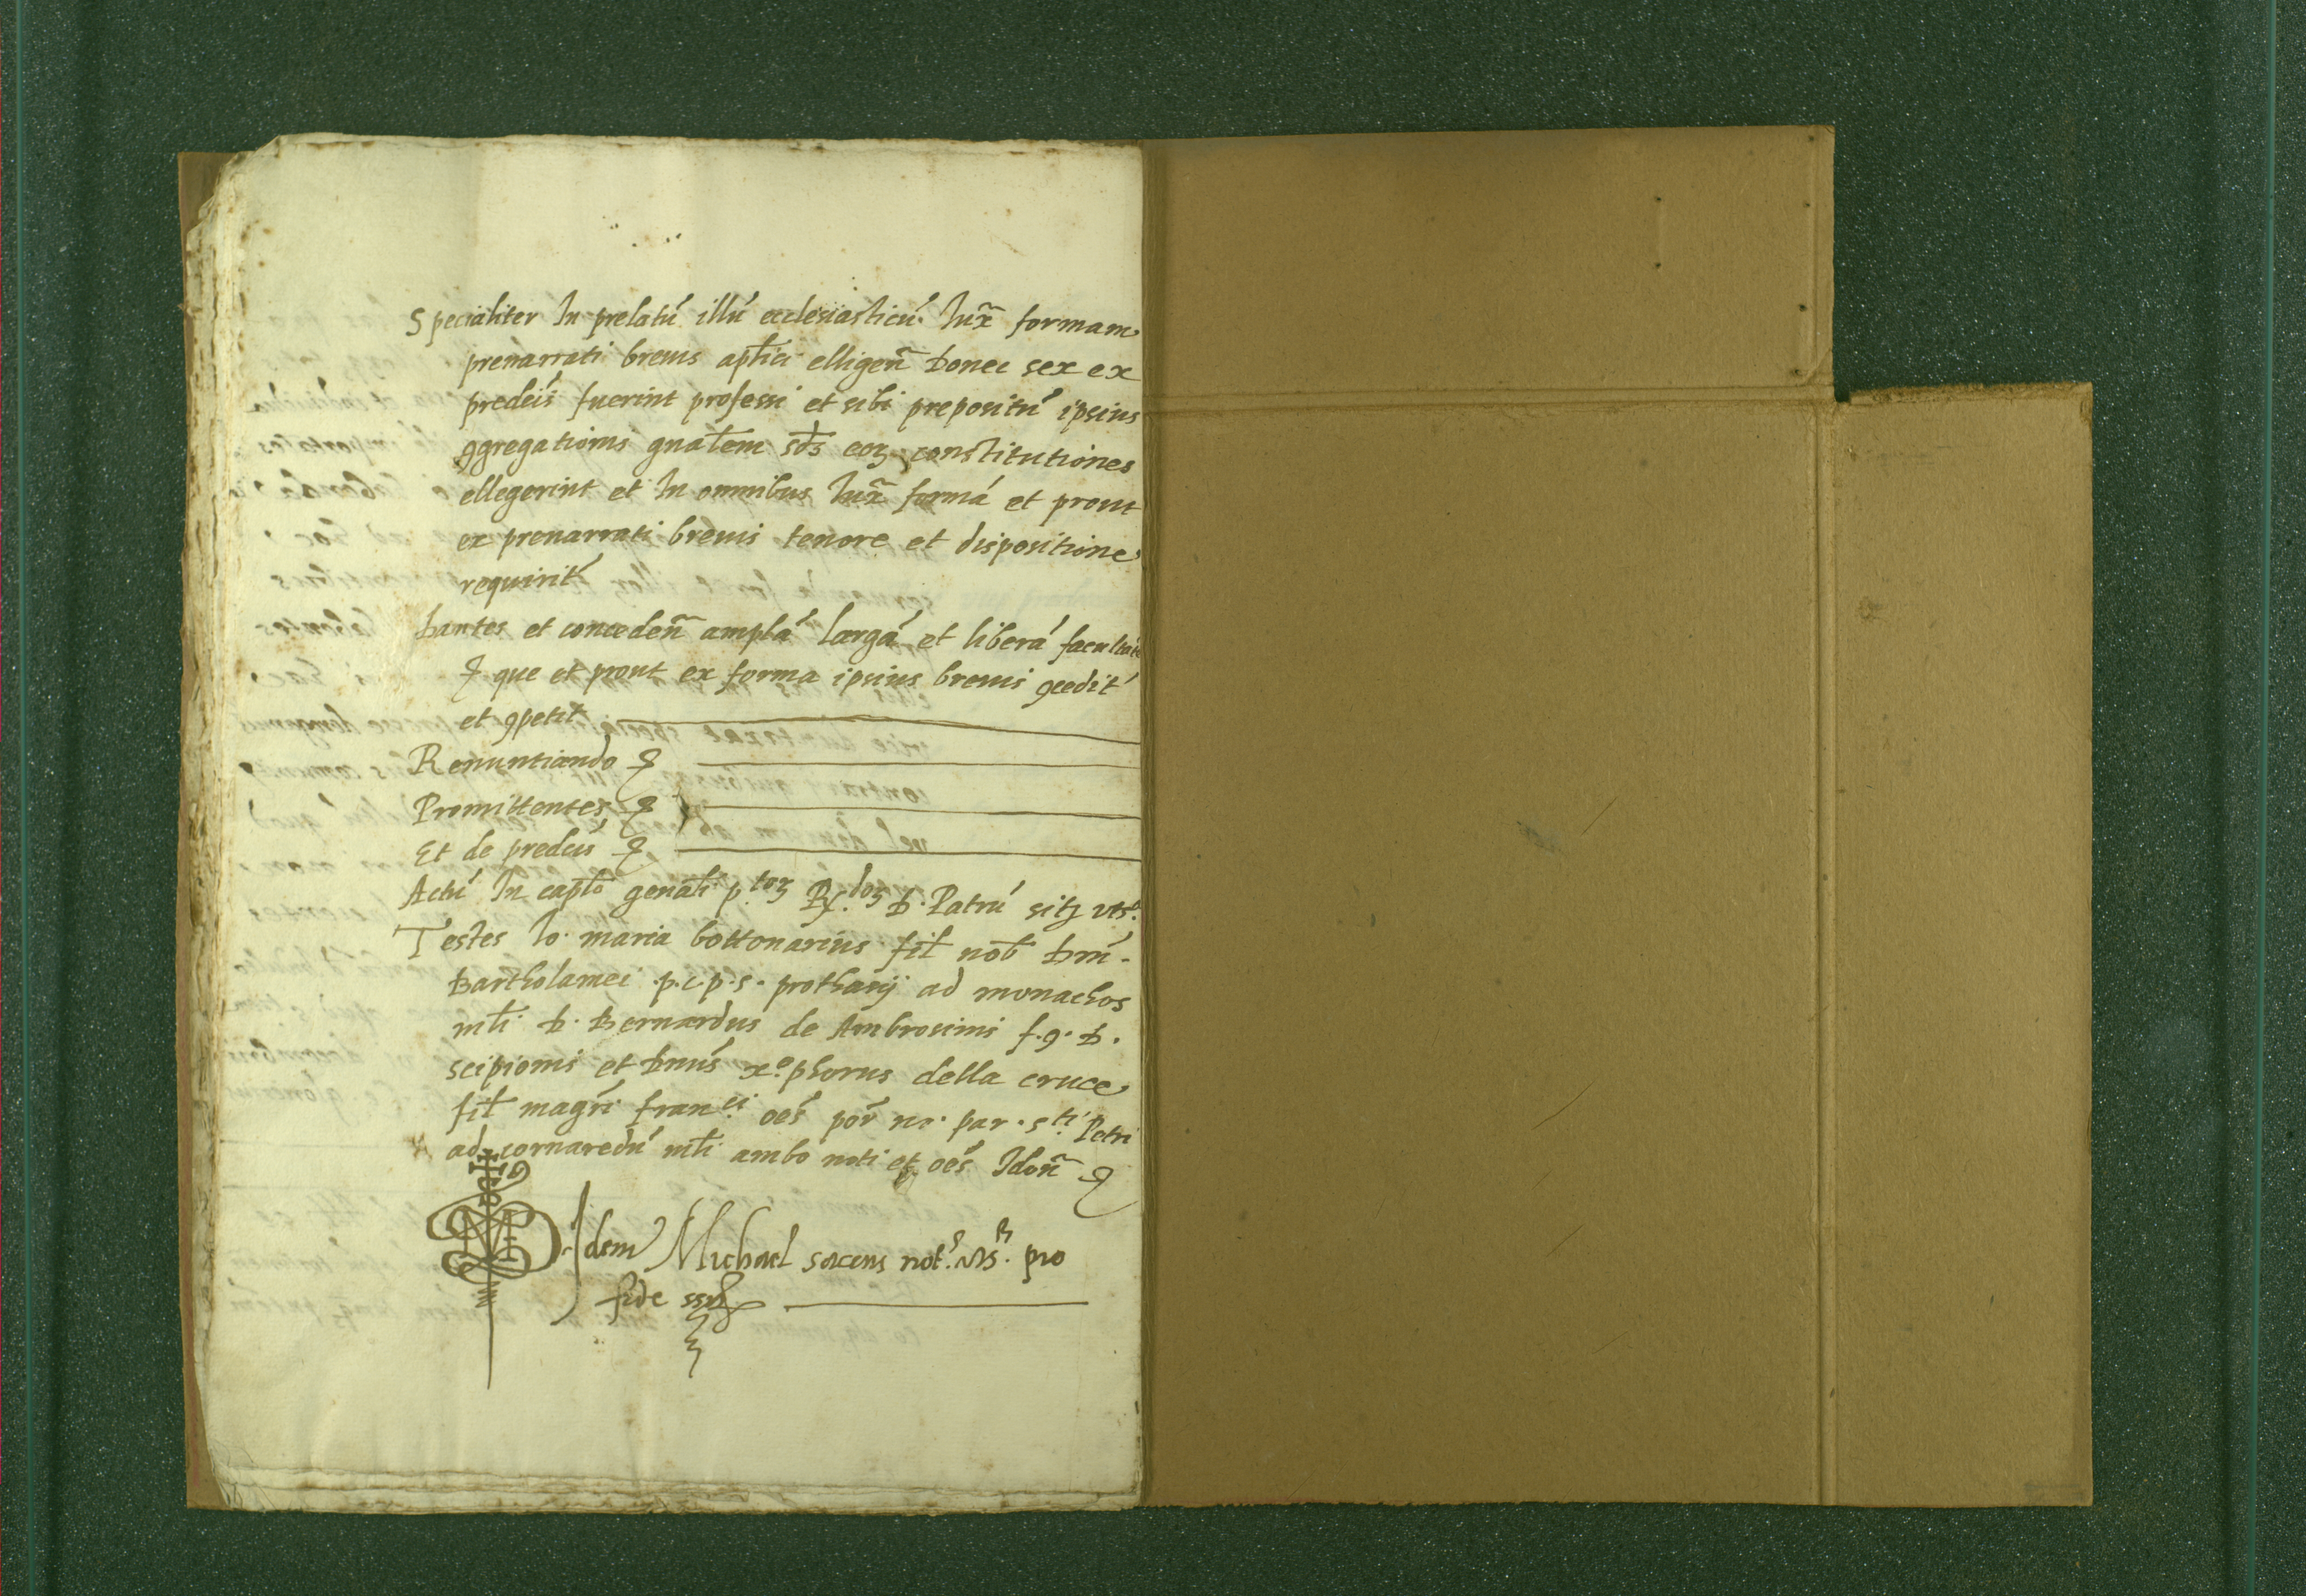 Specialiter In prelatú illú ecclesiasticú Iux̃ formam
prenarrati breuis aplici elligeñ donec sex ex
predcis fuerint professi et sibi prepositú ipsius
ꝯgregationis gnalem sds eoꝝ constitutiones
ellegerint et In omnibus Iux̃ formá et prout
ex prenarrati breuis tenore et dispositione
requirit́
Dantes et concedeñ amplá largá et liberá facultaté
que et prout ex forma ipsius breuis ꝯcedit́
et ꝯpetit
Renuntiando
Promittentes
Et de predcis
Actú In caplo genali p.toꝝ R.doꝝ D. Patrú sitꝫ vts.
Testes Io. maria bottonarius fil nob Dni
Bartholamei .p.c.p.s. prothanÿ ad monachos
mli D. Bernardus de Ambrosinis f.q. D.
scipionis et Dnus xo.phorus della cruce
fil magri franci. oes por no. par. sti. Petri
ad cornaredú mli ambo noti et oes Idoñ
Idem Michael sacens not.s pro
fide ss